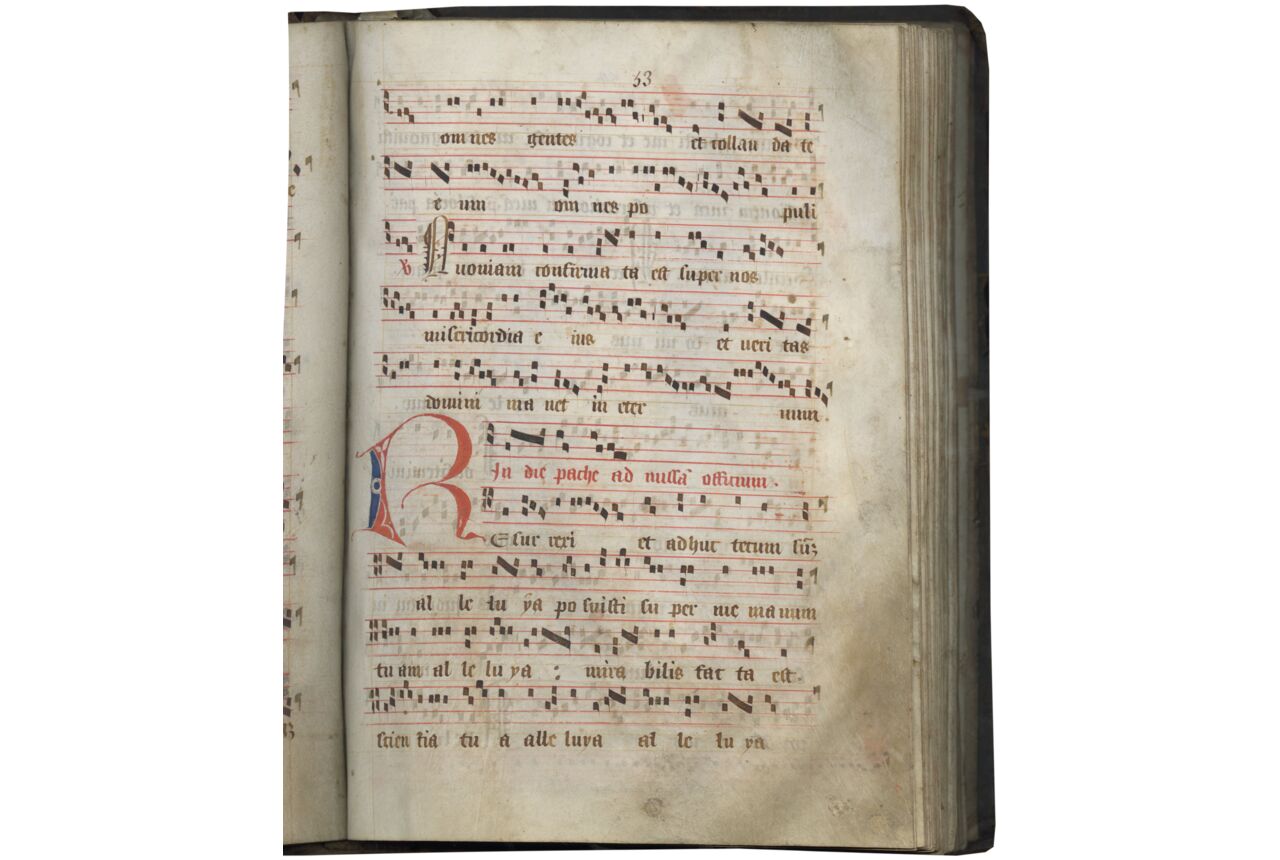 53
om nes gentes et collau da te
e um om nes po puli
℣ Quoniam confirma ta est super nos
misericordia e ius et veri tas
domini ma net in eter num.
In die pasche ad missā officium.
REsur rexi et adhuc tecum sūꝫ
al le lu ya po suisti su per me manum
tu am al le lu ya : mira bilis fac ta est.
scien tia tu a alle luya al le lu ya